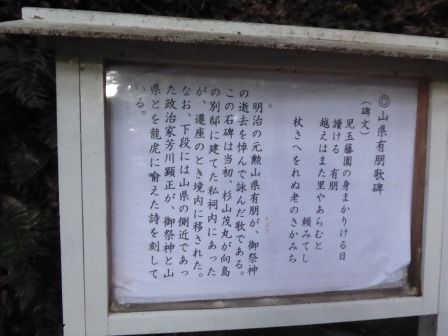 ◎山県有朋歌碑
(碑文)
児玉藤園の身まかりける日
讀ける 有朋
越えはまた里やあらむと 頼みてし
杖さへをれぬ老のさかみち
明治の元勲山県有朋が、御祭神
の逝去を悼んで詠んだ歌である。
この石碑は当初、杉山茂丸が向島
の別邸に建てた私祠内にあった
が、遷座のとき境内に移された。
なお、下段には山県の側近であっ
た政治家芳川顕正が、御祭神と山
県とを龍虎に喩えた詩を刻して
いる。